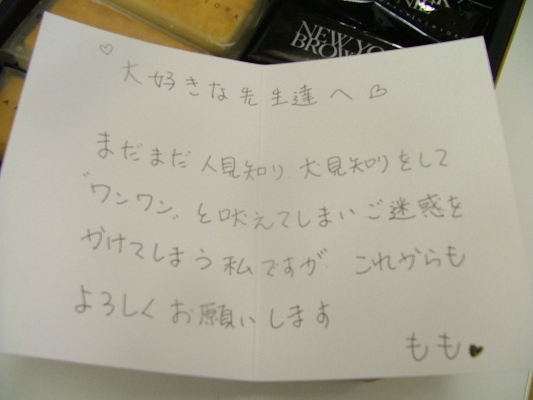 NEW YORK
BROW
♡
大好きな先生達へ♡
まだまだ人見知り、犬見知りをして
"ワンワン"と吠えてしまいご迷惑を
かけてしまう私ですが、これからも
よろしくお願いします
もも♥